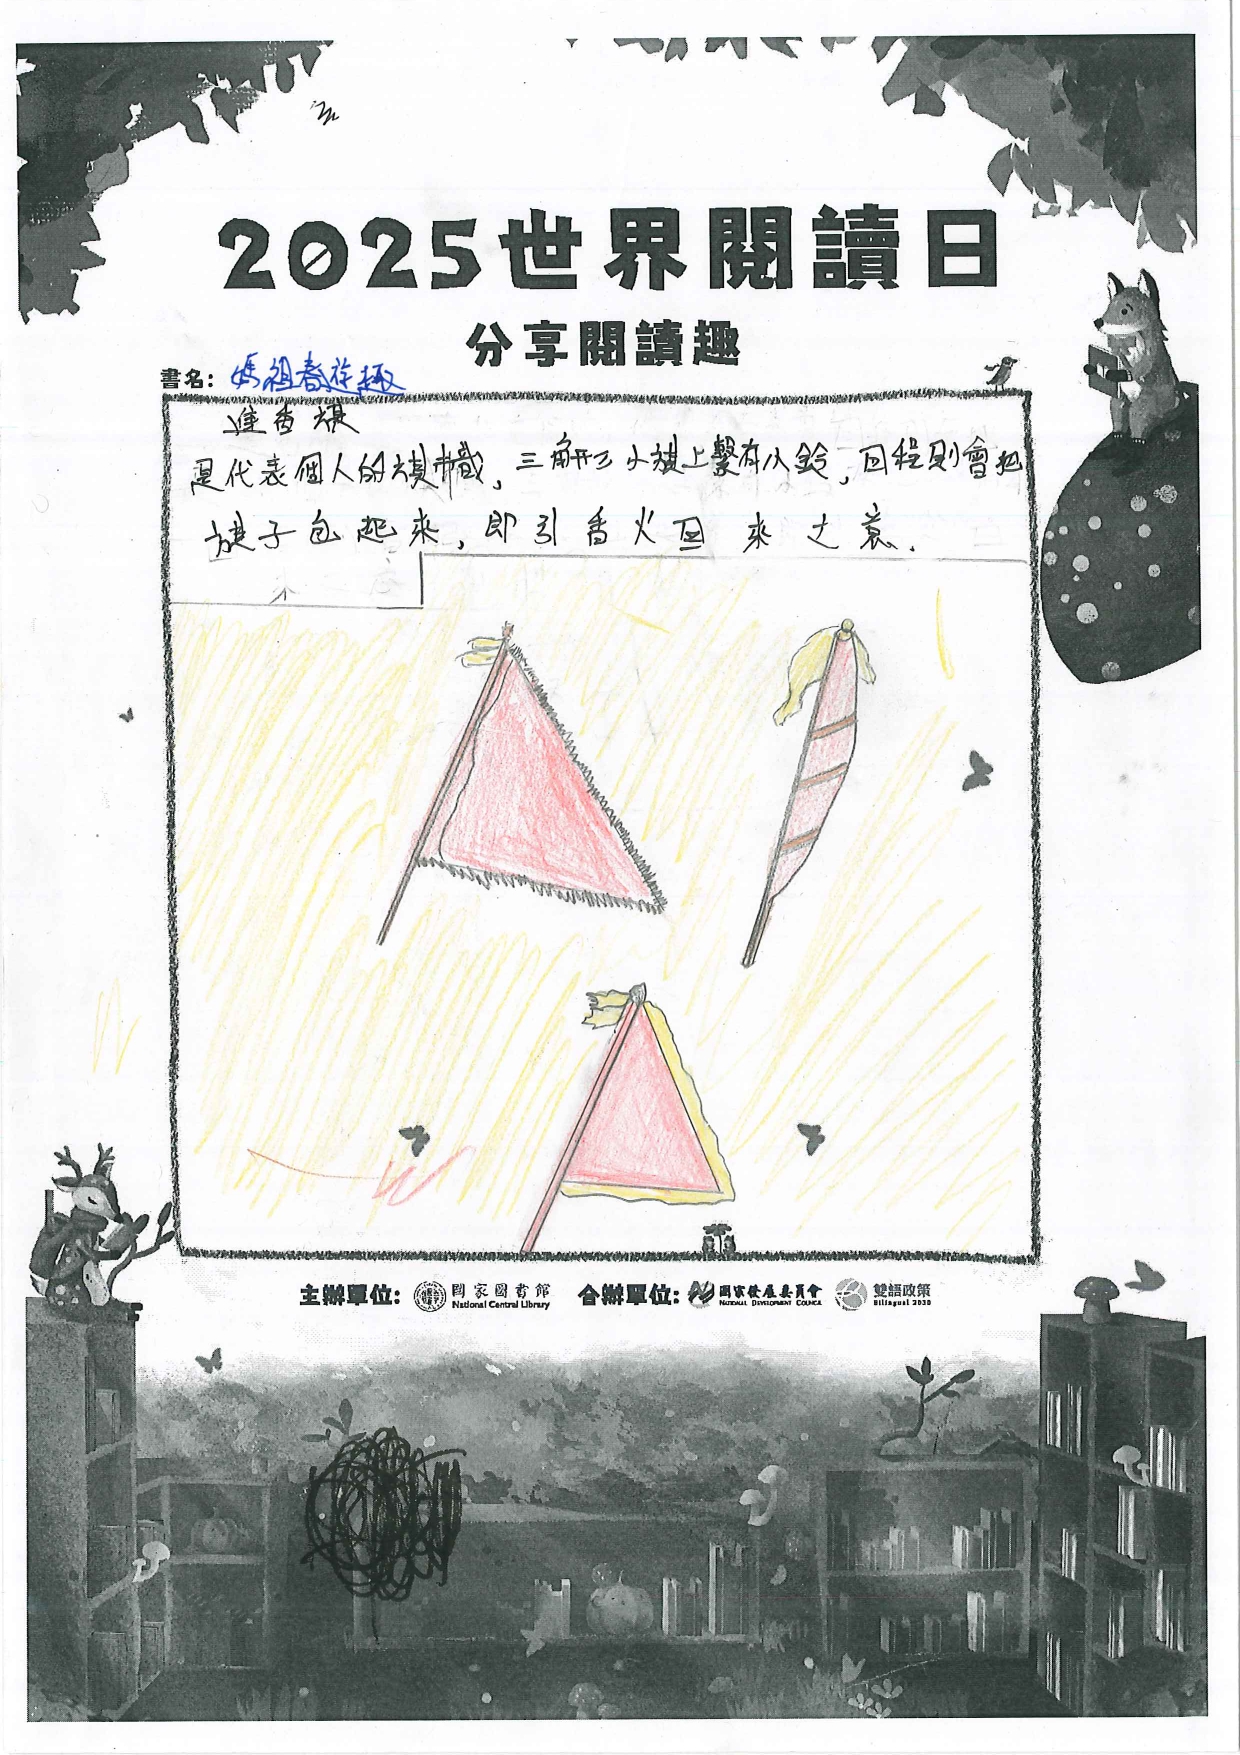 2025世界閱讀日
分享閱讀趣
書名: 媽祖春祥趣
進香旗
是代表個人的旗幟,三角形小旗上繫有小鈴,回程則會把
旗子包起來,即引香火回來之意.
主辦單位: 國家圖書館 合辦單位: 國家發展委員會 雙語政策
National Central Library NATIONAL DEVELOPMENT COUNCIL Bilingual 2030